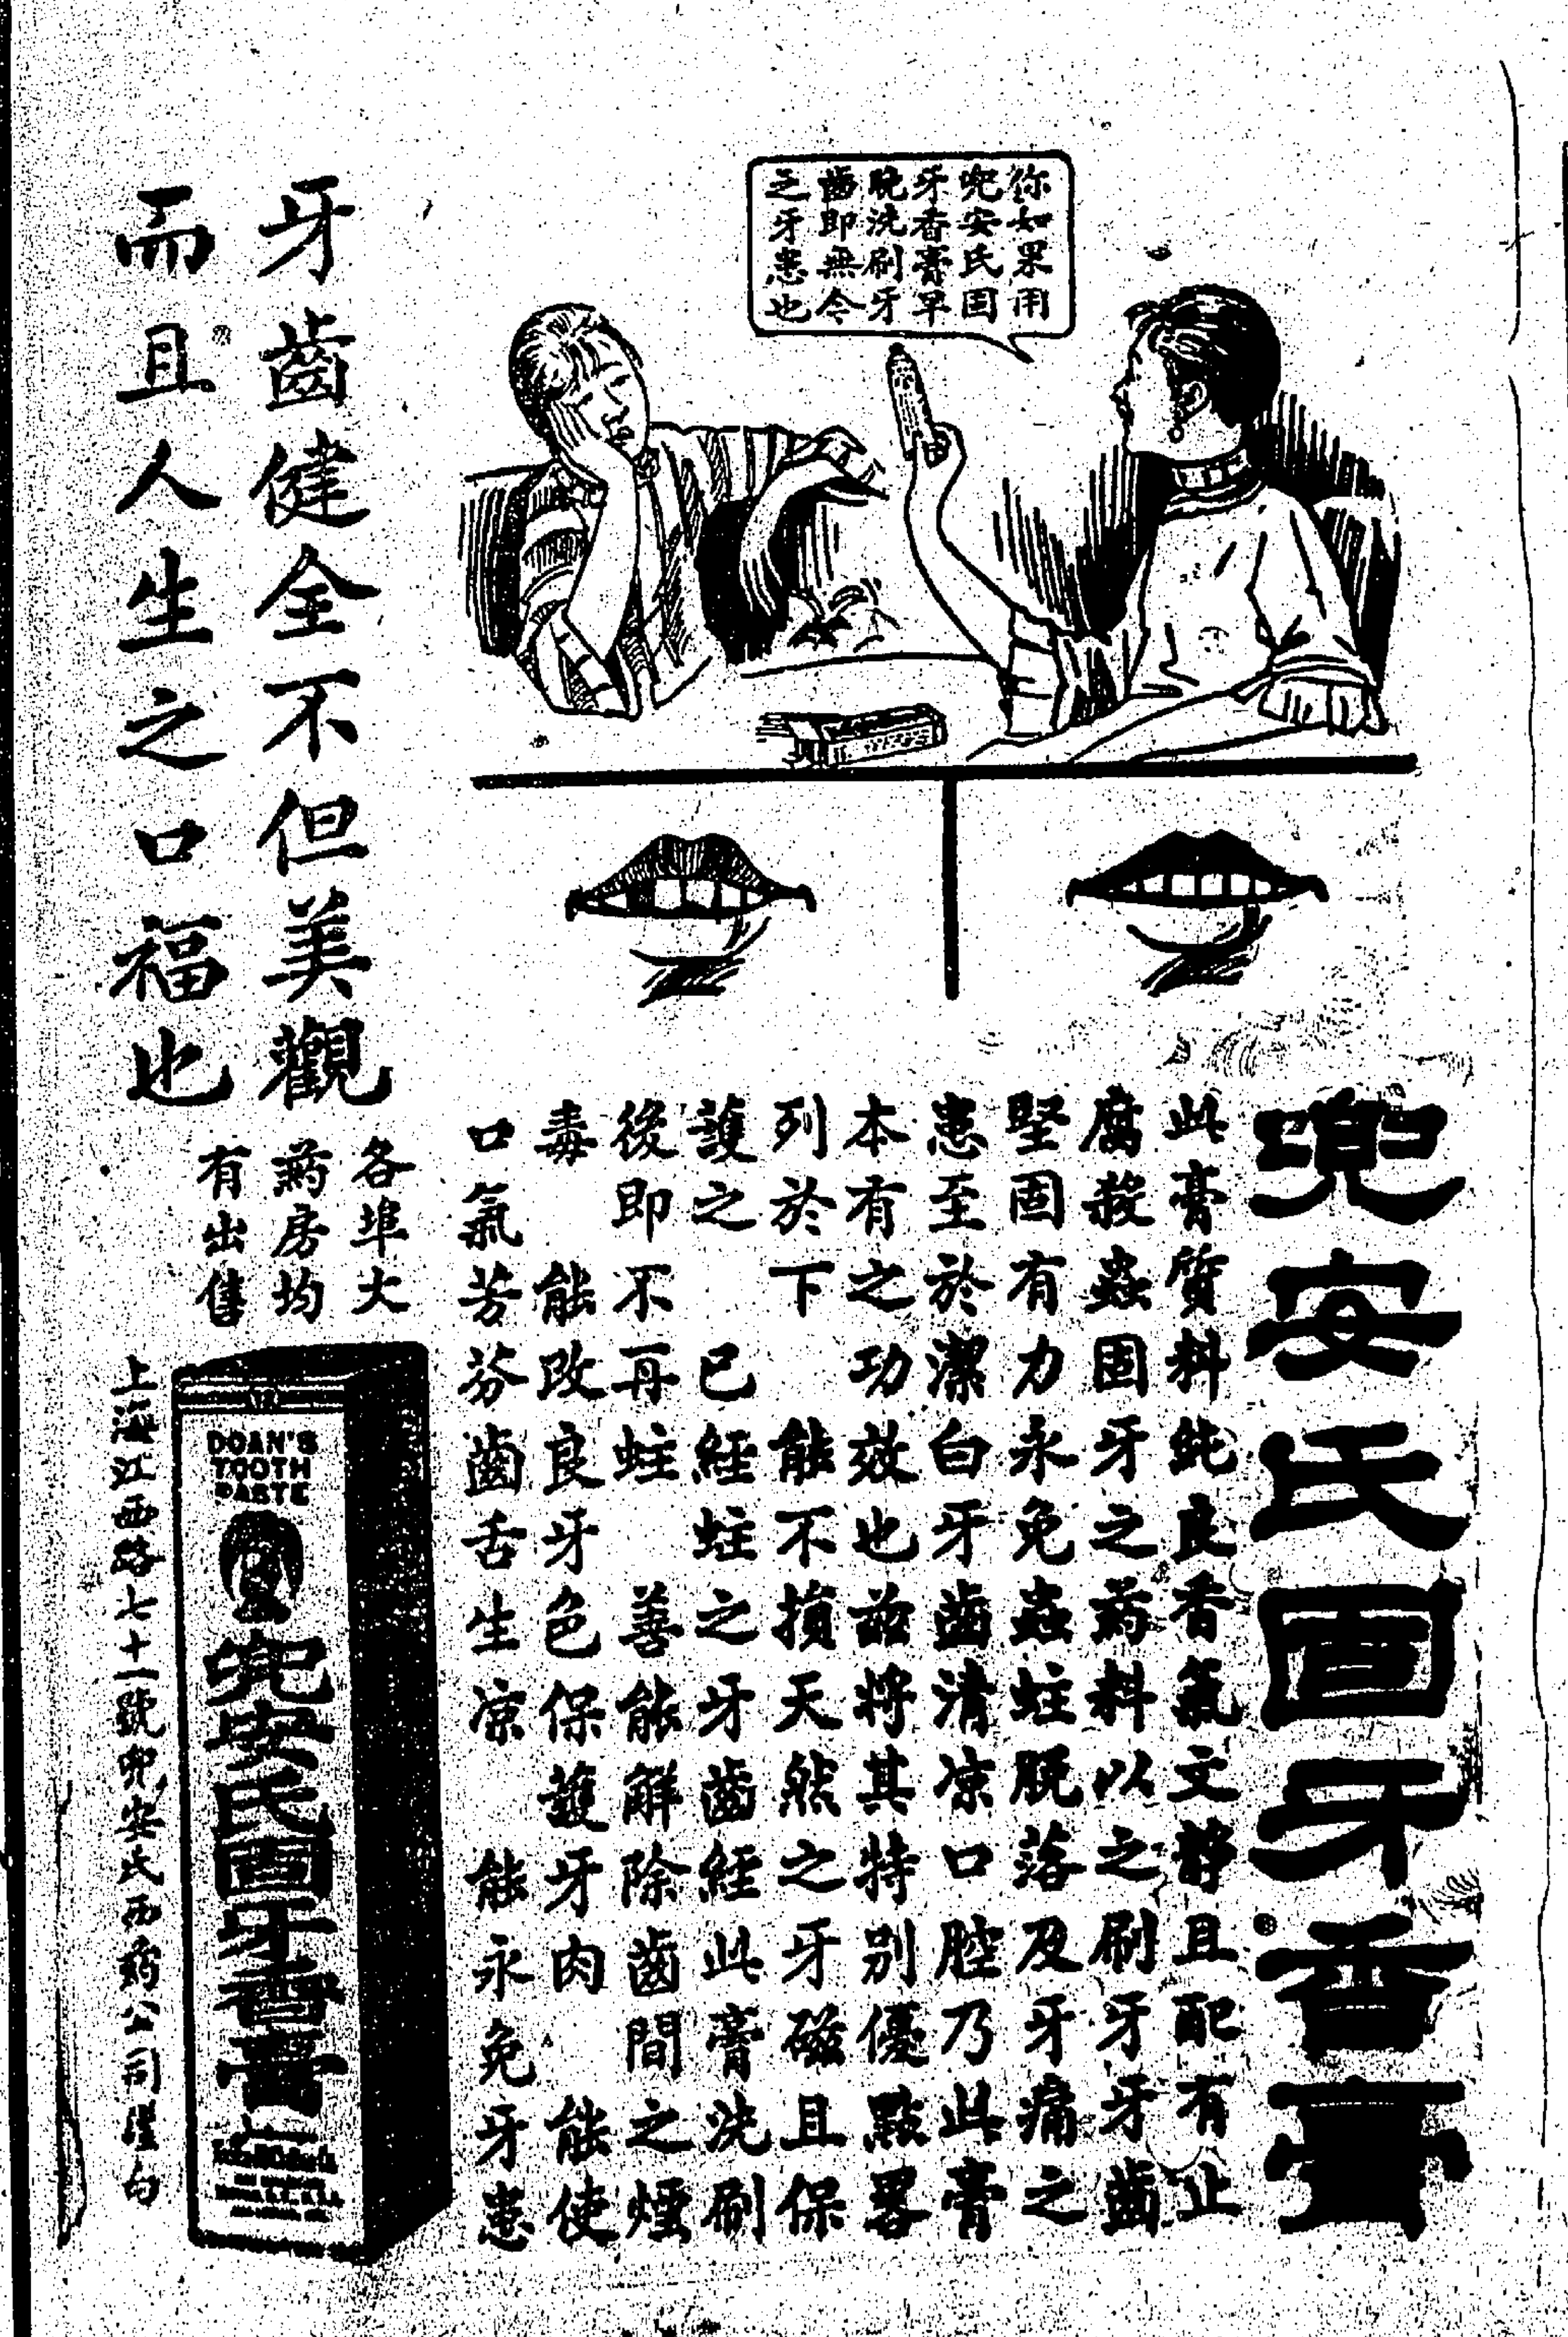 你如果用
兜安氏固
牙香膏早
晚洗刷牙
齒即無今
之牙患也
兜安氏固牙香膏
此膏質料純良香氣文靜且配有止
腐殺蟲固牙之葯料以之刷牙牙齒
堅固有力永免蟲蛀脫落及牙痛之
患至於潔白牙齒清涼口腔乃此膏
本有之功效也茲將其特別優點畧
列於下　能不損天然之牙磁且保
護之　已經蛀之牙齒經此膏洗刷
後即不再蛀　善能解除齒間之煙
毒　能改良牙色保護牙肉　能使
口氣芳芬齒舌生涼　能永免牙患
牙齒健全不但美觀
而且人生之口福也
各埠大
葯房均
有出售
DOAN'S
TOOTH
PASTE
兜安氏固牙香膏
上海江西路七十一號兜安氏西葯公司謹白